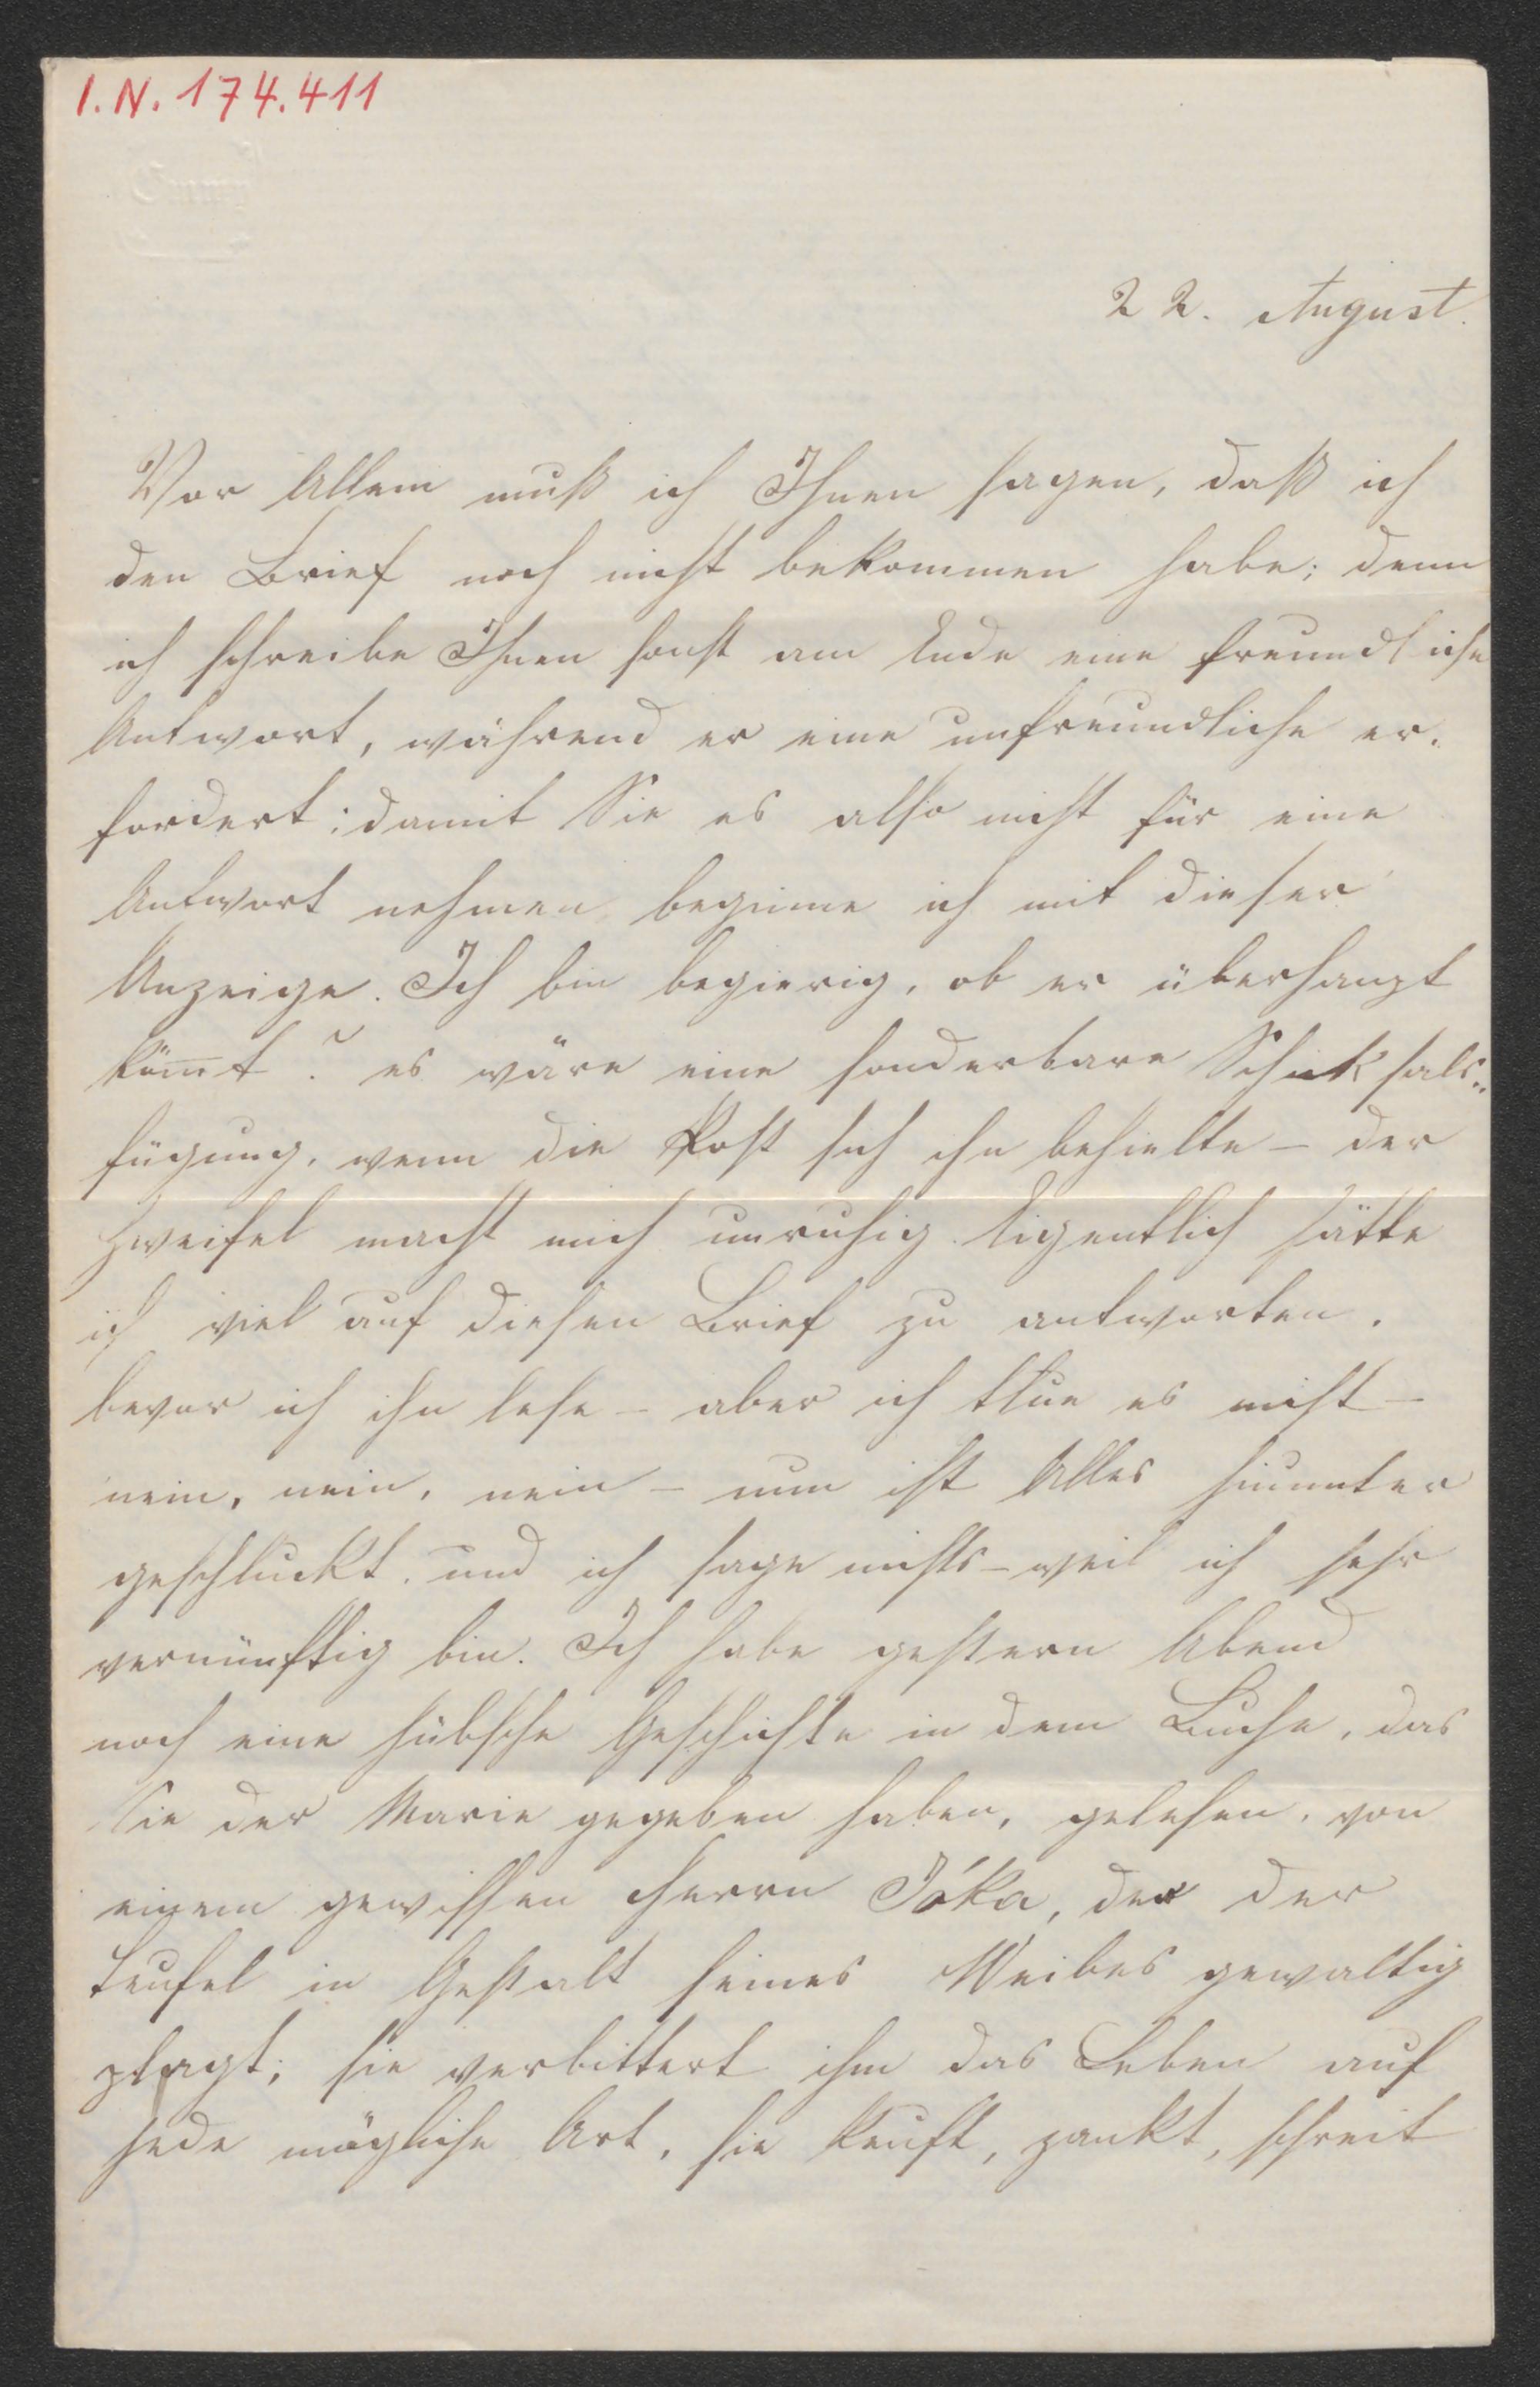 I.N. 174.411
22. August.
Vor Allem muß ich Ihnen sagen, daß ich
den Brief noch nicht bekommen habe; denn
ich schreibe Ihnen sonst am Ende eine freundliche
Antwort, während er eine unfreundliche er-
fordert; damit Sie es also nicht für eine
Antwort nehmen, beginne ich mit dieser
Anzeige. Ich bin begierig, ob er überhaupt
kom̄t? es wäre eine sonderbare Schicksals-
fügung, wenn die Post sich ihn behielte – der
Zweifel macht mich unruhig. Eigentlich hätte
ich viel auf diesen Brief zu antworten,
bevor ich ihn lese – aber ich thue es nicht –
nein, nein, nein – nun ist Alles hinunter
geschluckt, und ich sage nichts – weil ich sehr
vernünftig bin. Ich habe gestern Abend
noch eine hübsche Geschichte in dem Buche, das
Sie der Marie gegeben haben, gelesen, von
einem gewissen Herrn Jóka, der der
Teufel in Gestalt seines Weibes gewaltig
plagt; sie verbittert ihm das Leben auf
jede mögliche Art, sie keift, zankt, schreit